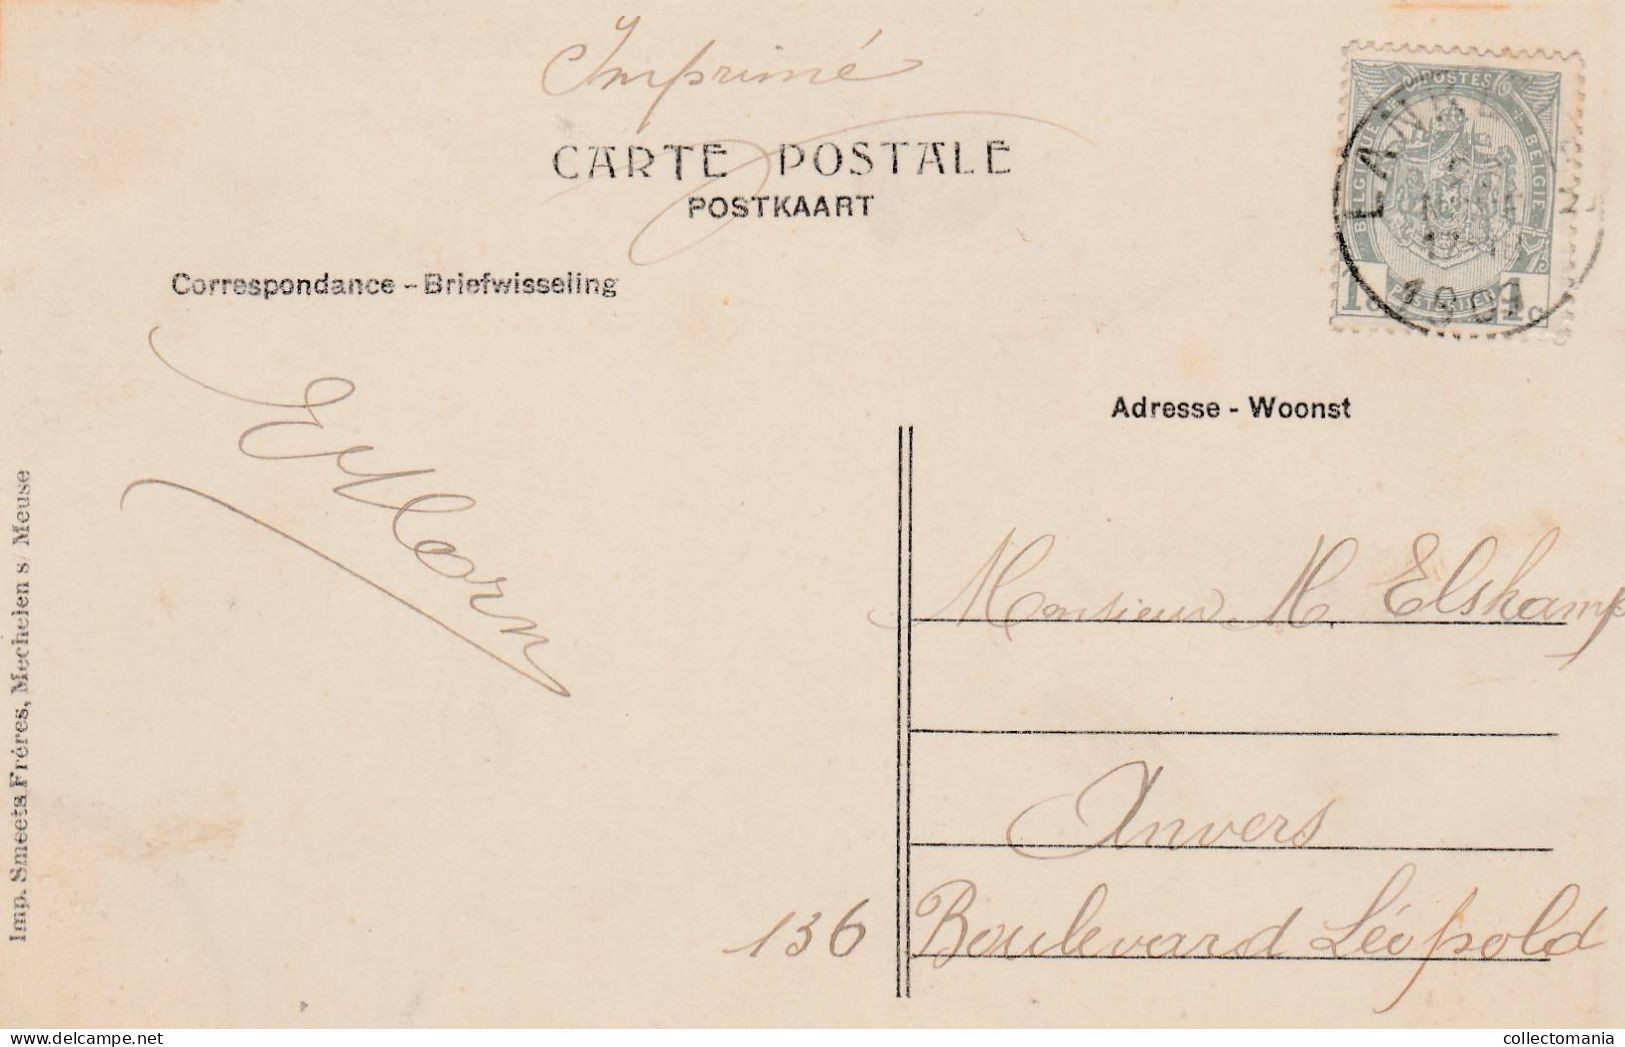 Imprimé
CARTE POSTALE
POSTKAART
Correspondance - Briefwisseling
POSTES
BELGIQUE
BELGIE
1c 1c
LA
Adresse - Woonst
Monsieur M. Elskamp
Anvers
136 Boulevard Léopold
Imp. Smeets Fréres, Mechelen s/ Meuse
collectomania